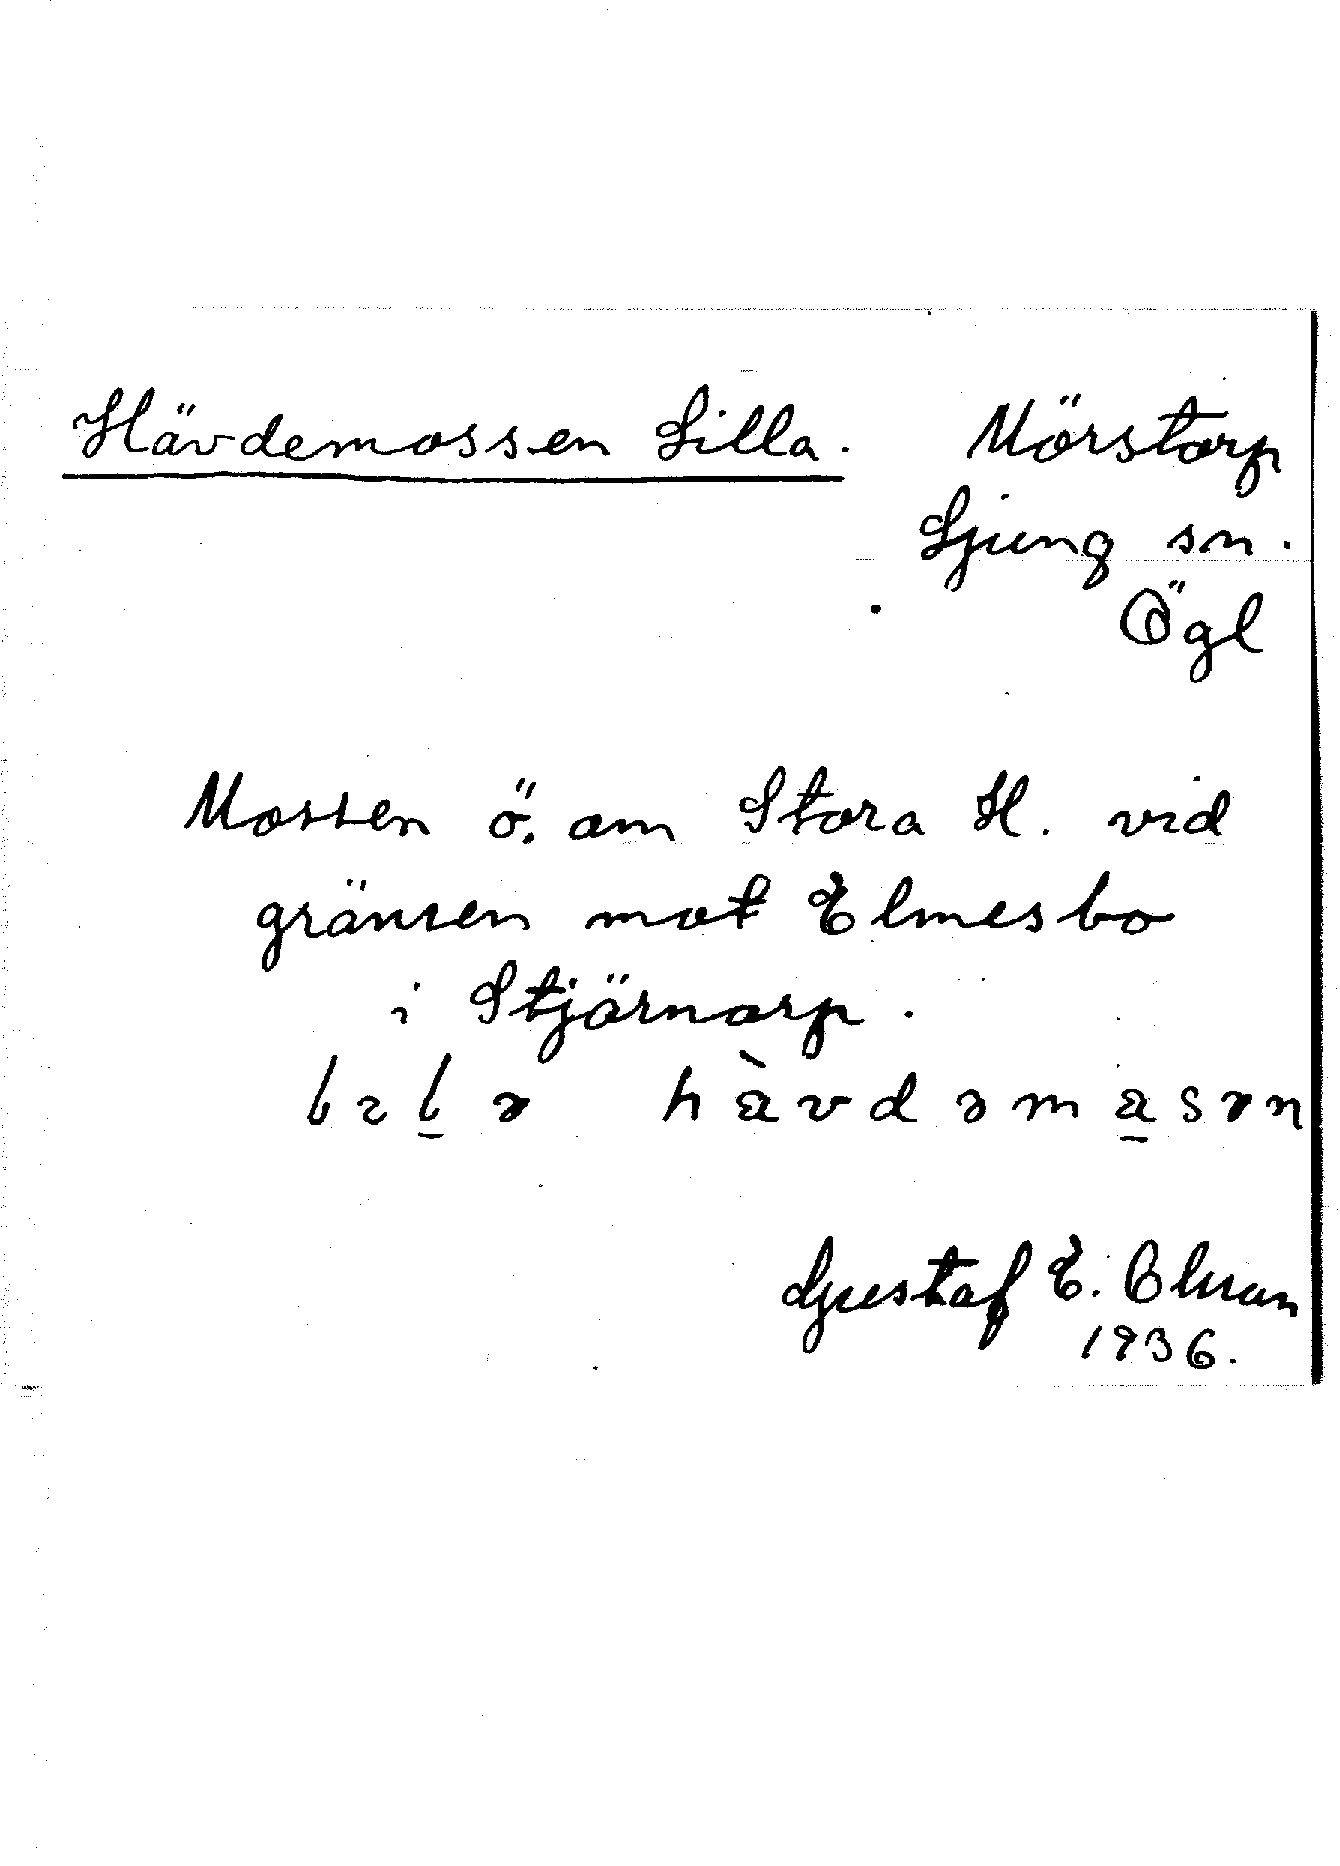 Hävdemossen Lilla. Mörstorp
Ljung sn.
Ögl
Mossen ö. om Stora H. vid
gränsen mot Elmesbo
i Stjärnorp.
Gustaf E.
1936.